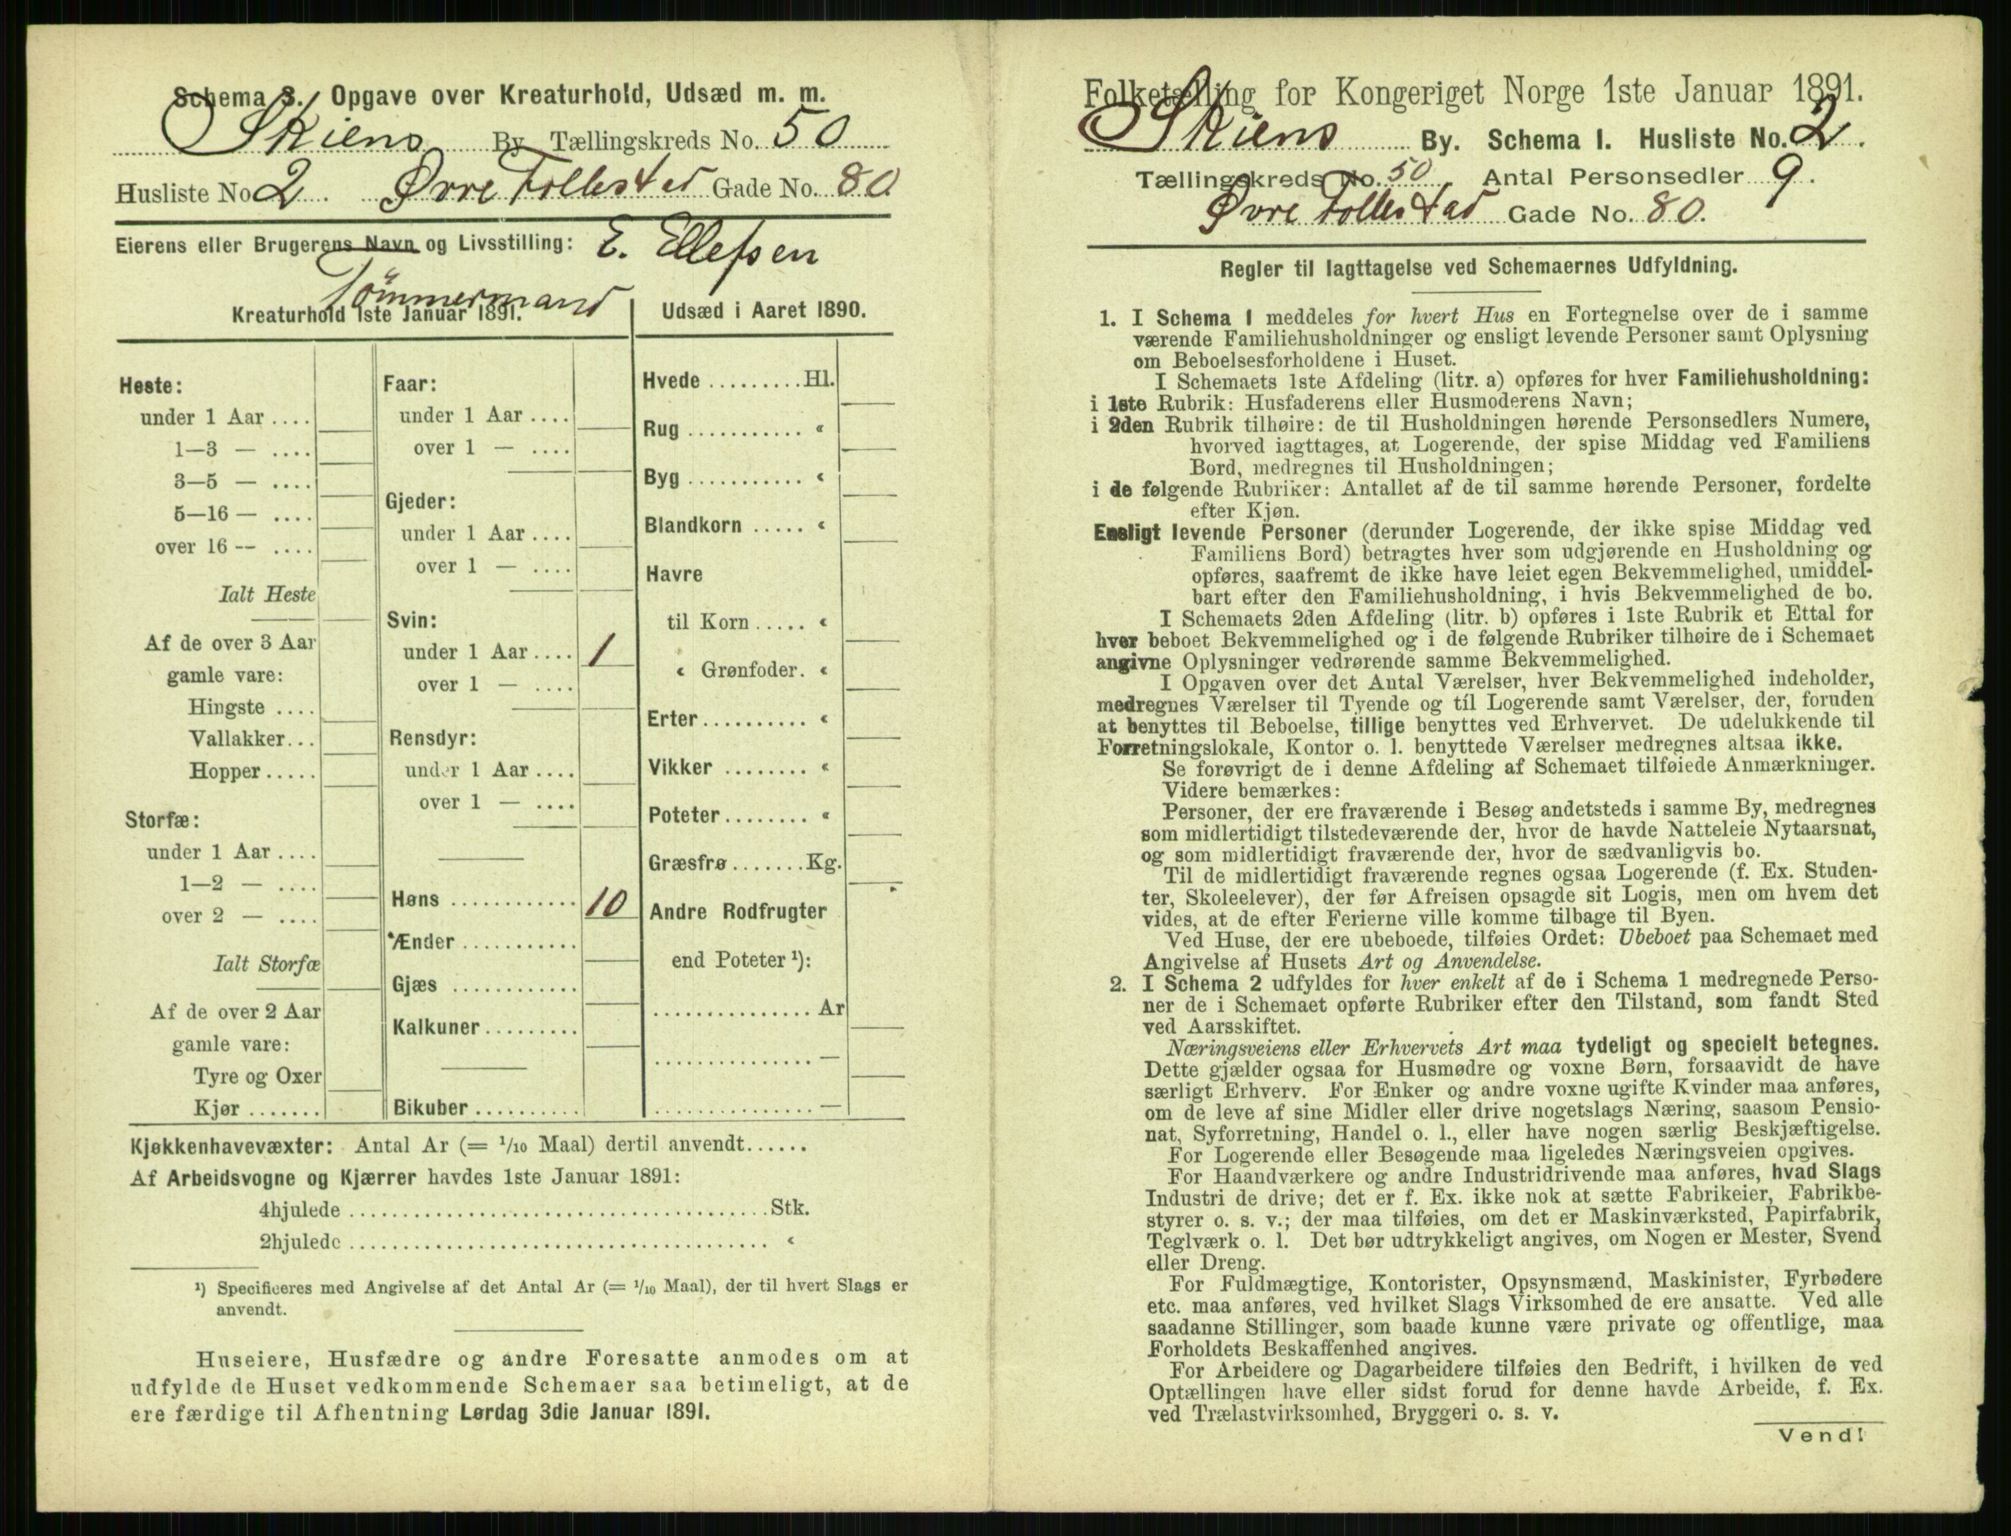 Schema 3. Opgave over Kreaturhold, Udsæd m. m.
Skiens By Tællingskreds No. 50
Husliste No 2. Øvre Follestad Gade No. 80
Eierens eller Brugerens Navn og Livsstilling: E. Ellefsen
Tömmermand
Kreaturhold 1ste Januar 1891.
Heste:
under 1 Aar ....
1—3 — ....
3—5 — ....
5—16 — ....
over 16 -- ....
Ialt Heste
Af de over 3 Aar
gamle vare:
Hingste ....
Vallakker...
Hopper.....
Storfæ:
under 1 Aar ....
1—2 — ....
over 2 — ....
Ialt Storfæ
Af de over 2 Aar
gamle vare:
Tyre og Oxer
Kjør .......
Faar:
under 1 Aar ....
over 1 — ....
Gjeder:
under 1 Aar ....
over 1 — ....
Svin:
under 1 Aar .... 1
over 1 — ....
Rensdyr:
under 1 Aar ....
over 1 — ....
Høns ............ 10
Ænder ...........
Gjæs ............
Kalkuner.........
Bikuber ..........
Udsæd i Aaret 1890.
Hvede .........Hl.
Rug ........... «
Byg ........... «
Blandkorn ..... «
Havre
til Korn ..... «
« Grønfoder. «
Erter.......... «
Vikker ........ «
Poteter........ «
Græsfrø.......Kg.
Andre Rodfrugter
end Poteter ¹):
............... Ar
............... —
............... —
Kjøkkenhavevæxter: Antal Ar (= 1/10 Maal) dertil anvendt......
Af Arbeidsvogne og Kjærrer havdes 1ste Januar 1891:
4hjulede ....................................Stk.
2hjulede .................................... «
¹) Specificeres med Angivelse af det Antal Ar (= 1/10 Maal), der til hvert Slags er
anvendt.
Huseiere, Husfædre og andre Foresatte anmodes om at
udfylde de Huset vedkommende Schemaer saa betimeligt, at de
ere færdige til Afhentning Lørdag 3die Januar 1891.
Folketælling for Kongeriget Norge 1ste Januar 1891.
Skiens By. Schema I. Husliste No. 2.
Tællingskreds No. 50 Antal Personsedler 9.
Øvre Follestad Gade No. 80.
Regler til Iagttagelse ved Schemaernes Udfyldning.
1. I Schema 1 meddeles for hvert Hus en Fortegnelse over de i samme
værende Familiehusholdninger og ensligt levende Personer samt Oplysning
om Beboelsesforholdene i Huset.
I Schemaets 1ste Afdeling (litr. a) opføres for hver Familiehusholdning:
i 1ste Rubrik: Husfaderens eller Husmoderens Navn;
i 2den Rubrik tilhøire: de til Husholdningen hørende Personsedlers Numere,
hvorved iagttages, at Logerende, der spise Middag ved Familiens
Bord, medregnes til Husholdningen;
i de følgende Rubriker: Antallet af de til samme hørende Personer, fordelte
efter Kjøn.
Ensligt levende Personer (derunder Logerende, der ikke spise Middag ved
Familiens Bord) betragtes hver som udgjørende en Husholdning og
opføres, saafremt de ikke have leiet egen Bekvemmelighed, umiddel-
bart efter den Familiehusholdning, i hvis Bekvemmelighed de bo.
I Schemaets 2den Afdeling (litr. b) opføres i 1ste Rubrik et Ettal for
hver beboet Bekvemmelighed og i de følgende Rubriker tilhøire de i Schemaet
angivne Oplysninger vedrørende samme Bekvemmelighed.
I Opgaven over det Antal Værelser, hver Bekvemmelighed indeholder,
medregnes Værelser til Tyende og til Logerende samt Værelser, der, foruden
at benyttes til Beboelse, tillige benyttes ved Erhvervet. De udelukkende til
Forretningslokale, Kontor o. l. benyttede Værelser medregnes altsaa ikke.
Se forøvrigt de i denne Afdeling af Schemaet tilføiede Anmærkninger.
Videre bemærkes:
Personer, der ere fraværende i Besøg andetsteds i samme By, medregnes
som midlertidigt tilstedeværende der, hvor de havde Natteleie Nytaarsnat,
og som midlertidigt fraværende der, hvor de sædvanligvis bo.
Til de midlertidigt fraværende regnes ogsaa Logerende (f. Ex. Studen-
ter, Skoleelever), der før Afreisen opsagde sit Logis, men om hvem det
vides, at de efter Ferierne ville komme tilbage til Byen.
Ved Huse, der ere ubeboede, tilføies Ordet: Ubeboet paa Schemaet med
Angivelse af Husets Art og Anvendelse.
2. I Schema 2 udfyldes for hver enkelt af de i Schema 1 medregnede Perso-
ner de i Schemaet opførte Rubriker efter den Tilstand, som fandt Sted
ved Aarsskiftet.
Næringsveiens eller Erhvervets Art maa tydeligt og specielt betegnes.
Dette gjælder ogsaa for Husmødre og voxne Børn, forsaavidt de have
særligt Erhverv. For Enker og andre voxne ugifte Kvinder maa anføres,
om de leve af sine Midler eller drive nogetslags Næring, saasom Pensio-
nat, Syforretning, Handel o. l., eller have nogen særlig Beskjæftigelse.
For Logerende eller Besøgende maa ligeledes Næringsveien opgives.
For Haandværkere og andre Industridrivende maa anføres, hvad Slags
Industri de drive; det er f. Ex. ikke nok at sætte Fabrikeier, Fabrikbe-
styrer o. s. v.; der maa tilføies, om det er Maskinværksted, Papirfabrik,
Teglværk o. l. Det bør udtrykkeligt angives, om Nogen er Mester, Svend
eller Dreng.
For Fuldmægtige, Kontorister, Opsynsmænd, Maskinister, Fyrbødere
etc. maa anføres, ved hvilket Slags Virksomhed de ere ansatte. Ved alle
saadanne Stillinger, som baade kunne være private og offentlige, maa
Forholdets Beskaffenhed angives.
For Arbeidere og Dagarbeidere tilføies den Bedrift, i hvilken de ved
Optællingen have eller sidst forud for denne havde Arbeide, f. Ex.
ved Trælastvirksomhed, Bryggeri o. s. v.
Vend!